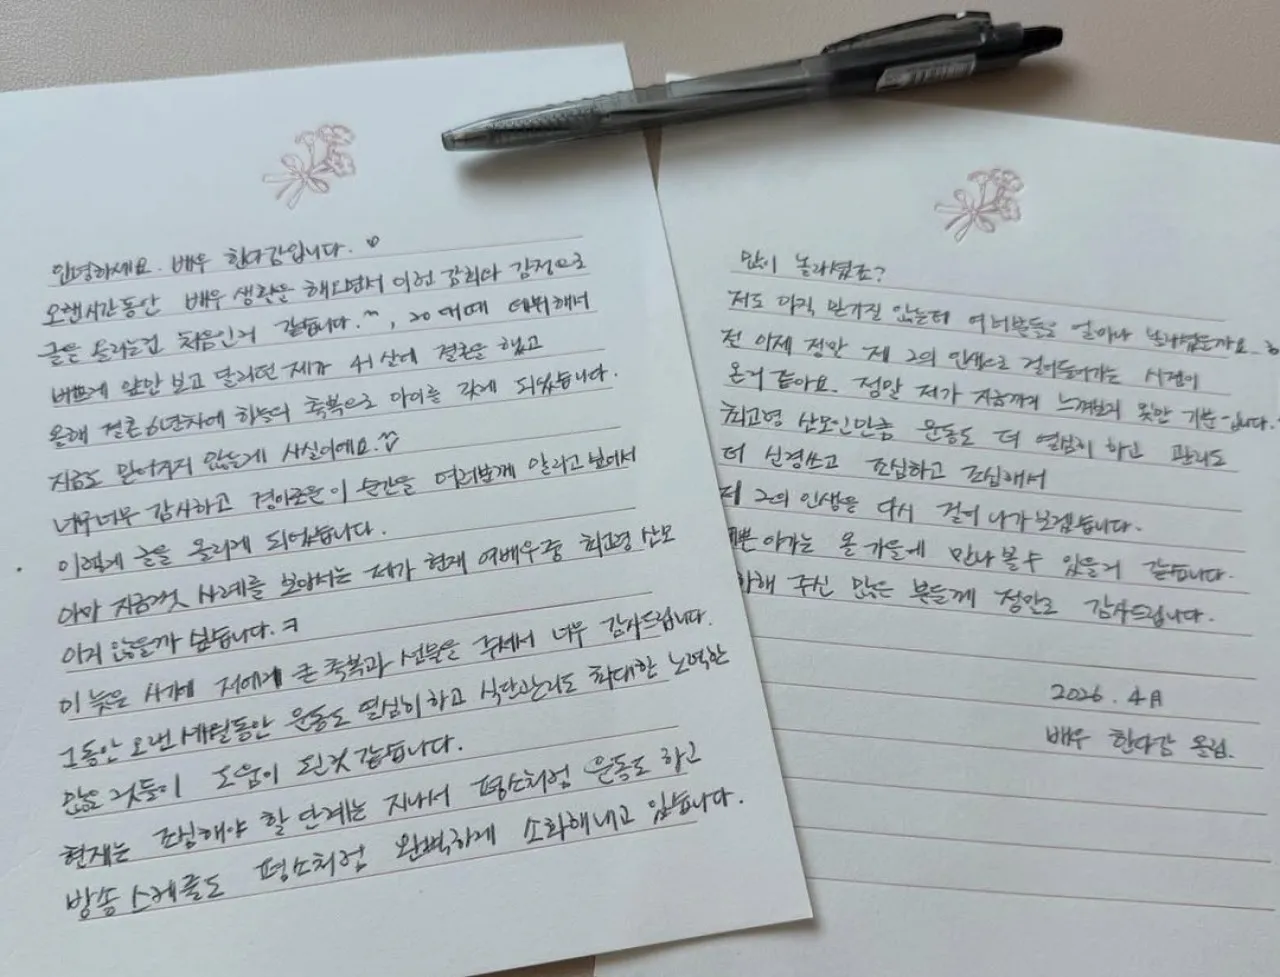 안녕하세요. 배우 한다감입니다.
오랜시간동안 배우 생활을 해오면서 이런 감회와 감정으로
글을 올리는건 처음인거 같습니다.^^, 20대때 데뷔해서
바쁘게 앞만 보고 달리던 제가 41살에 결혼을 했고
올해 결혼 6년차에 하늘의 축복으로 아이를 갖게 되었습니다.
지금도 믿어지지 않는게 사실이에요.
너무너무 감사하고 경이로운 이 순간을 여러분께 알리고 보여서
이렇게 글을 올리게 되었습니다.
아마 지금껏 사례를 보아서는 제가 현재 여배우중 최고령 산모
이지 않을까 싶습니다.ㅋ
이 늦은 시기에 저에게 큰 축복과 선물을 주셔서 너무 감사드립니다.
그동안 오랜세월동안 운동도 열심히 하고 식단관리도 최대한 노력한
많은 것들이 도움이 된것 같습니다.
현재는 조심해야 할 단계는 지나서 평소처럼 운동도 하고
방송 스케줄도 평소처럼 완벽하게 소화해내고 있습니다.
많이 놀라셨죠?
저도 아직 믿기질 않는데 여러분들은 얼마나 놀라셨을까요.
전 이제 정말 제 2의 인생으로 걸어들어가는 시점이
온거 같아요. 정말 저가 지금까지 느껴보지 못한 기분입니다.
최고령 산모인만큼 운동도 더 열심히 하고 관리도
더 신경쓰고 조심하고 조심해서
제 2의 인생을 다시 걸어 나가보겠습니다.
쁜 아가는 올 가을에 만나 볼수 있을거 같습니다.
하해 주신 많은 분들께 정말로 감사드립니다.
2026. 4月
배우 한다감 올림.